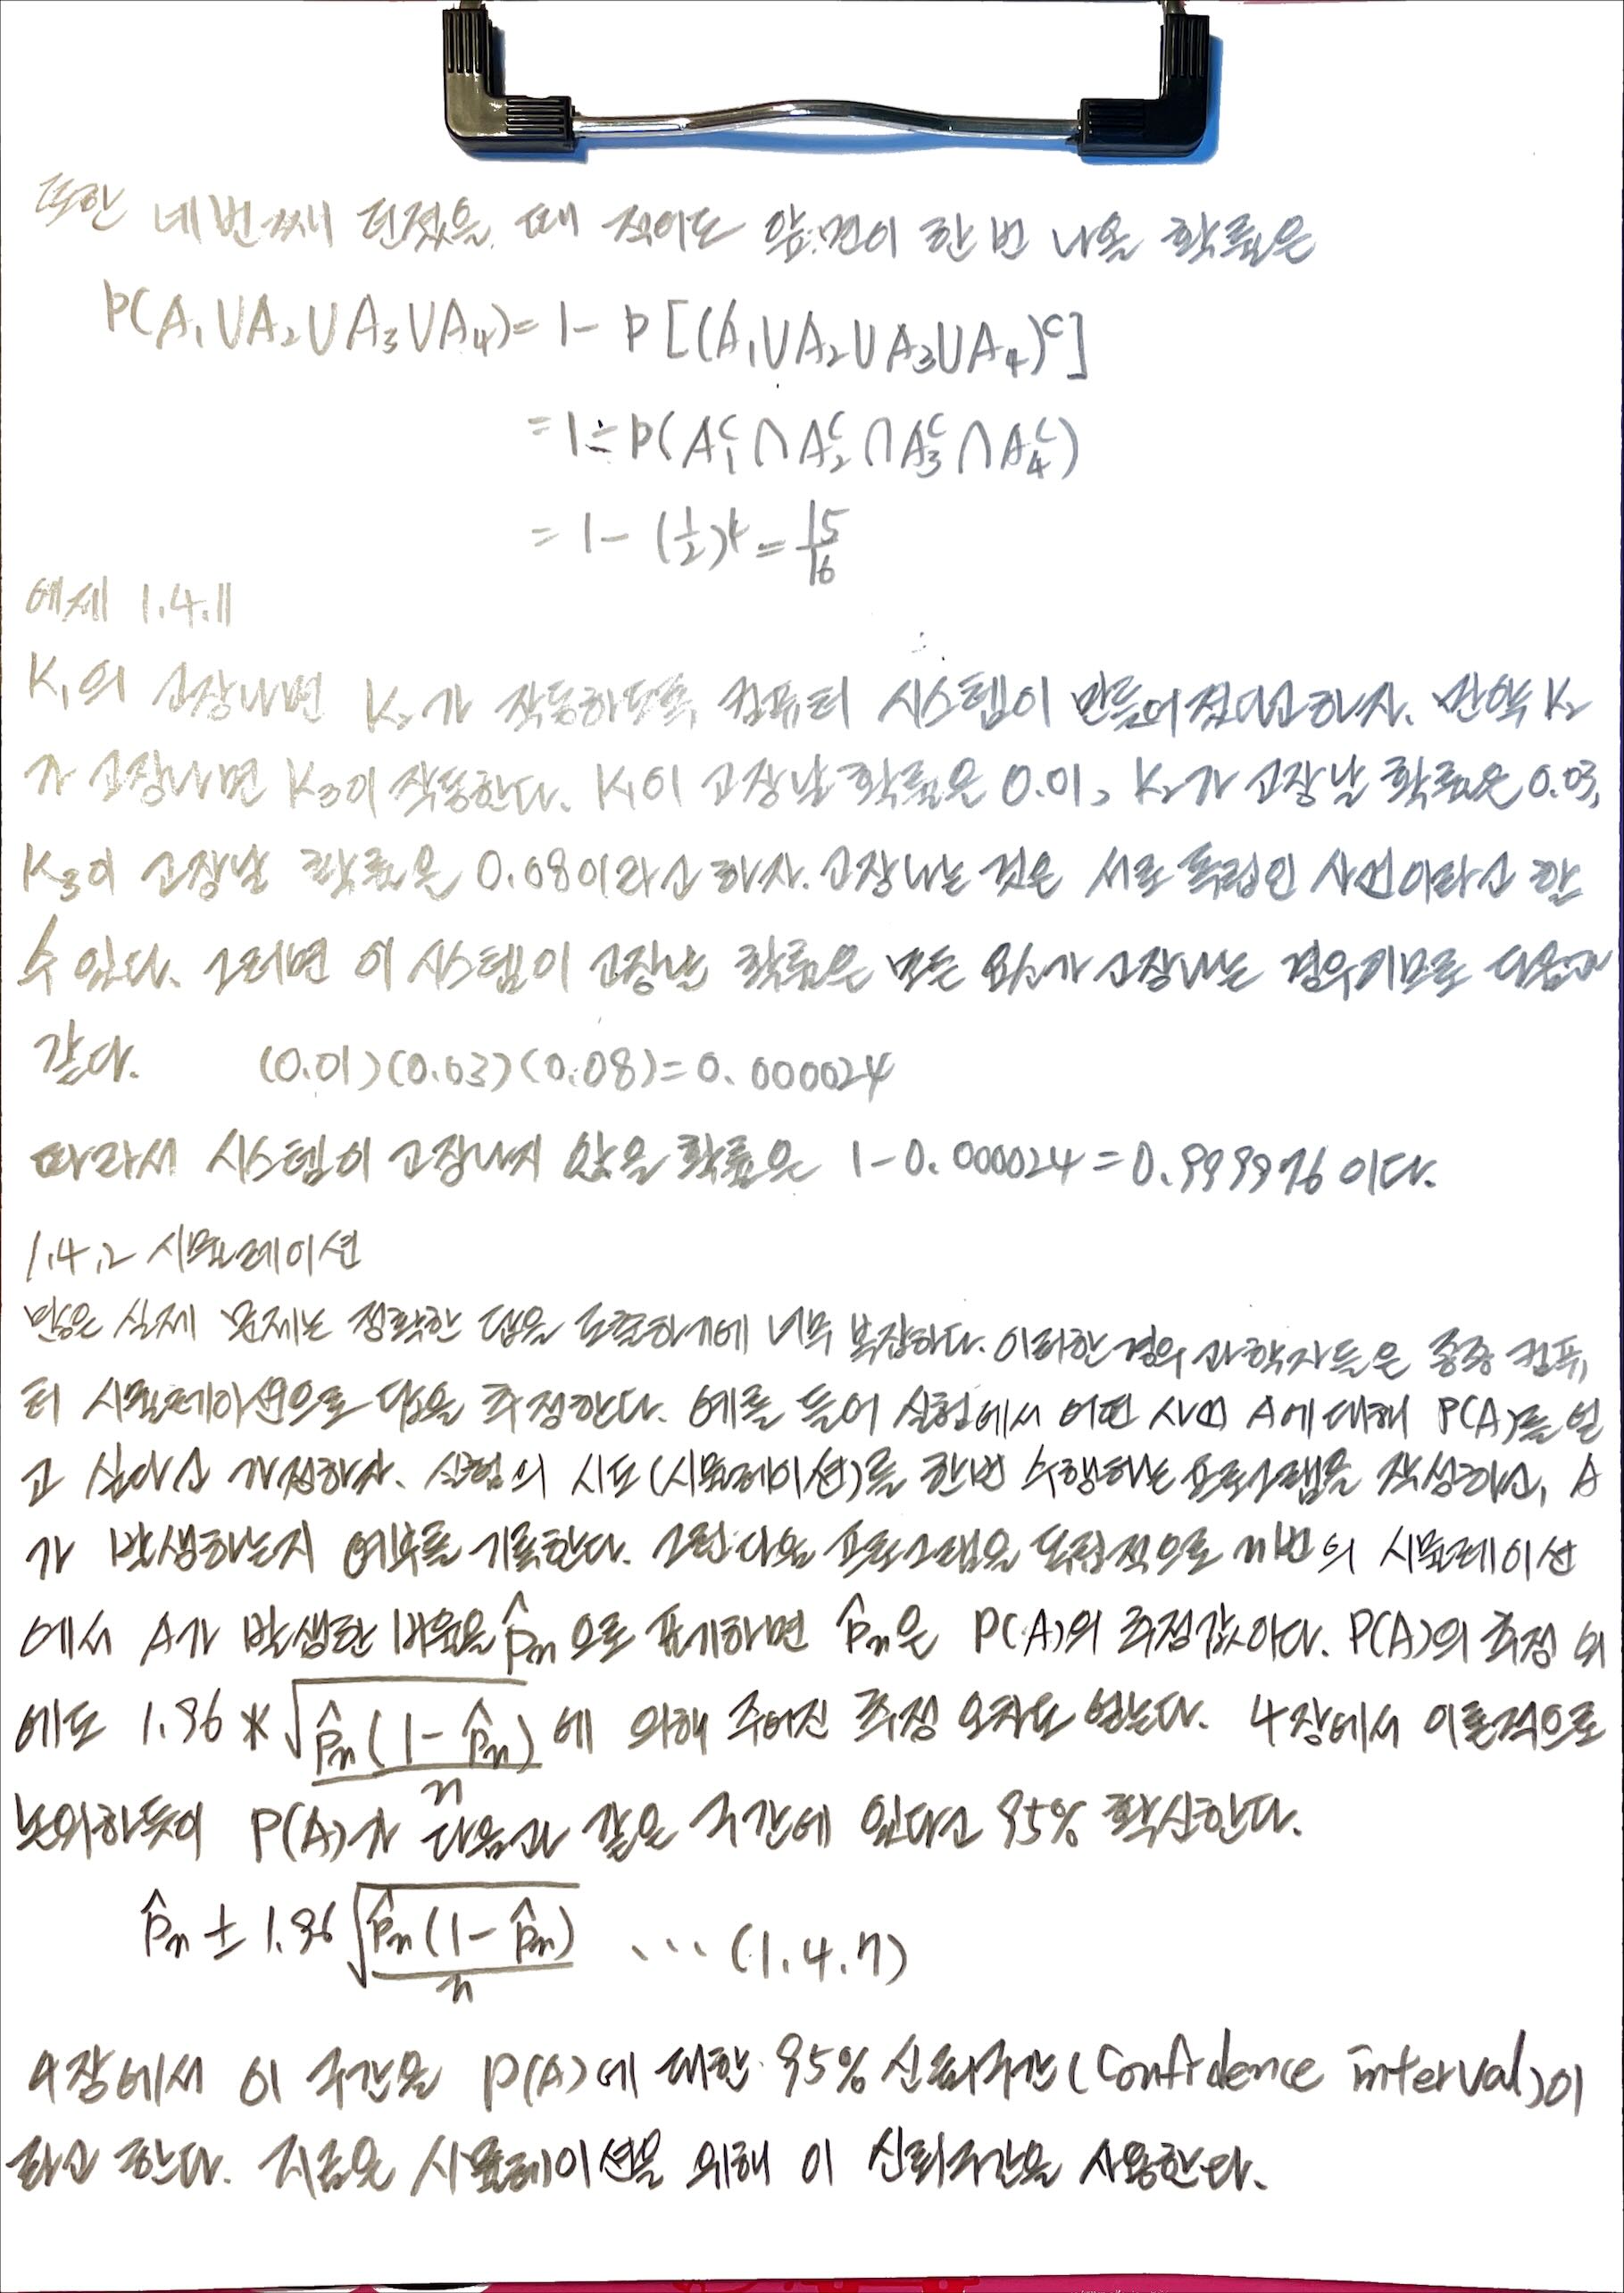 또한 네번째 던졌을 때 적어도 앞면이 한 번 나올 확률은
P(A₁∪A₂∪A₃∪A₄)= 1- P[(A₁∪A₂∪A₃∪A₄)ᶜ]
=1-P(A₁ᶜ∩A₂ᶜ∩A₃ᶜ∩A₄ᶜ)
= 1-(1/2)⁴=15/16
예제 1.4.11
K₁의 고장나면 K₂가 작동하도록 컴퓨터 시스템이 만들어졌다고하자. 만약 K₂
가 고장나면 K₃이 작동한다. K₁이 고장날 확률은 0.01, K₂가 고장날 확률은 0.03,
K₃이 고장날 확률은 0.08이라고 하자. 고장나는 것은 서로 독립인 사건이라고 할
수 있다. 그러면 이 시스템이 고장날 확률은 모든 요소가 고장나는 경우기므로 다음과
같다. (0.01)(0.03)(0.08)=0.000024
따라서 시스템이 고장나지 않을 확률은 1-0.000024=0.999976이다.
1.4.2 시뮬레이션
많은 실제 문제는 정확한 답을 도출하기에 너무 복잡하다. 이러한 경우 과학자들은 종종 컴퓨
터 시뮬레이션으로 답을 추정한다. 예를 들어 실험에서 어떤 사건 A에 대해 P(A)를 얻
고 싶다고 가정하자. 실험의 시도(시뮬레이션)를 한번 수행하는 프로그램을 작성하고, A
가 발생하는지 여부를 기록한다. 그런다음 프로그램을 독립적으로 n번의 시뮬레이션
에서 A가 발생한 비율을 p̂ₙ으로 표기하면 p̂ₙ은 P(A)의 추정값이다. P(A)의 추정 외
에도 1.96*√(p̂ₙ(1-p̂ₙ)/n)에 의해 주어진 추정 오차도 얻는다. 4장에서 이론적으로
논의하듯이 P(A)가 다음과 같은 구간에 있다고 95% 확신한다.
p̂ₙ ± 1.96√(p̂ₙ(1-p̂ₙ)/n) ... (1.4.7)
4장에서 이 구간을 P(A)에 대한 95% 신뢰구간(Confidence interval)이
라고 한다. 지금은 시뮬레이션을 위해 이 신뢰구간을 사용한다.